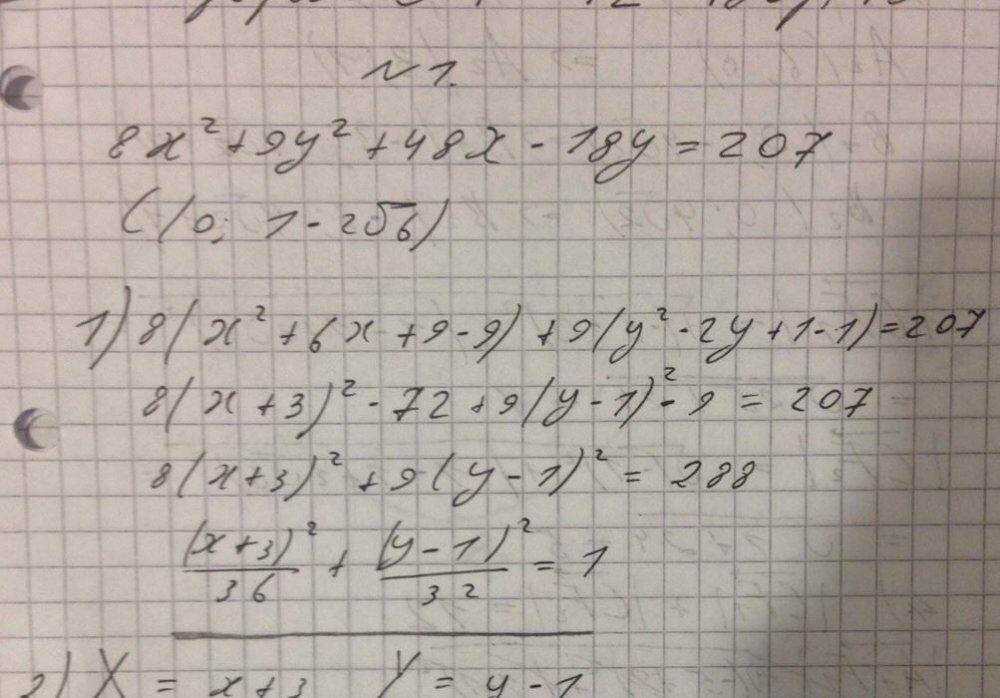 №1.
8x² + 9y² + 48x - 18y = 207
(10; 1 - 2√6)
1) 8(x² + 6x + 9 - 9) + 9(y² - 2y + 1 - 1) = 207
8(x + 3)² - 72 + 9(y - 1)² - 9 = 207
8(x + 3)² + 9(y - 1)² = 288
(x + 3)²/36 + (y - 1)²/32 = 1
2) X = x + 3 Y = y - 1